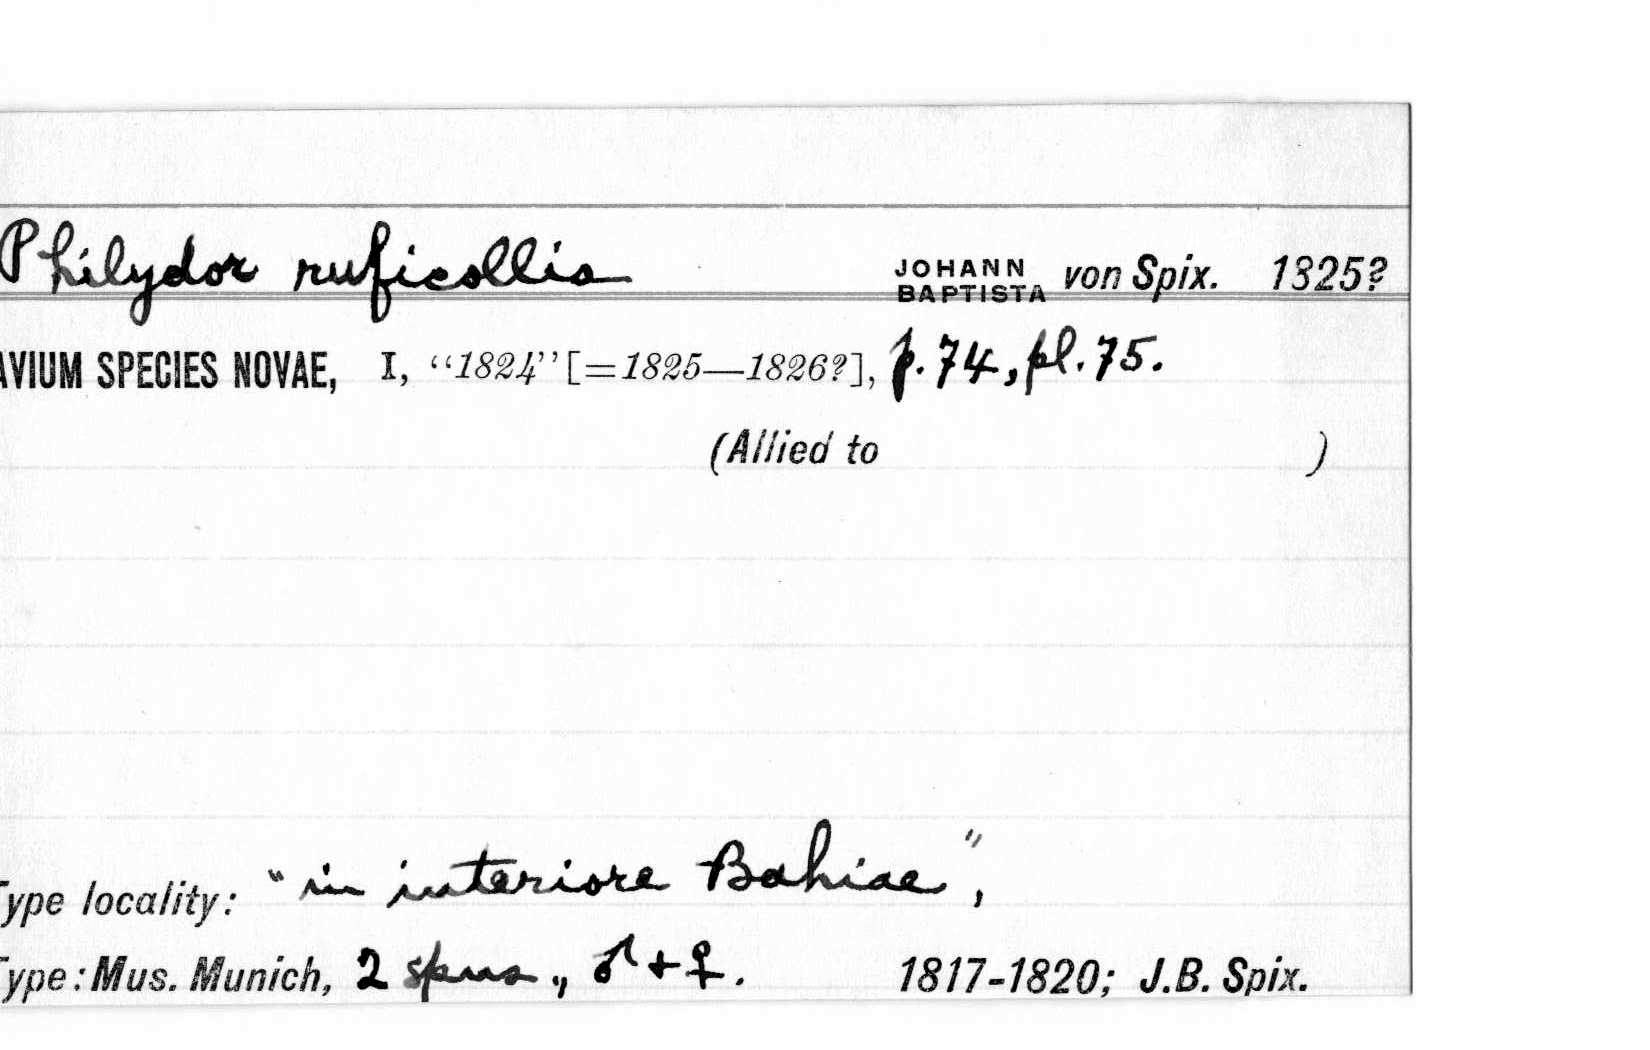 Philydor ruficollis JOHANN BAPTISTA von Spix. 1825?
AVIUM SPECIES NOVAE, I, “1824” [=1825—1826?], p. 74, pl. 75.
(Allied to )
Type locality: "in interiore Bahiae",
Type: Mus. Munich, 2 spms., ♂ + ♀. 1817-1820; J.B. Spix.